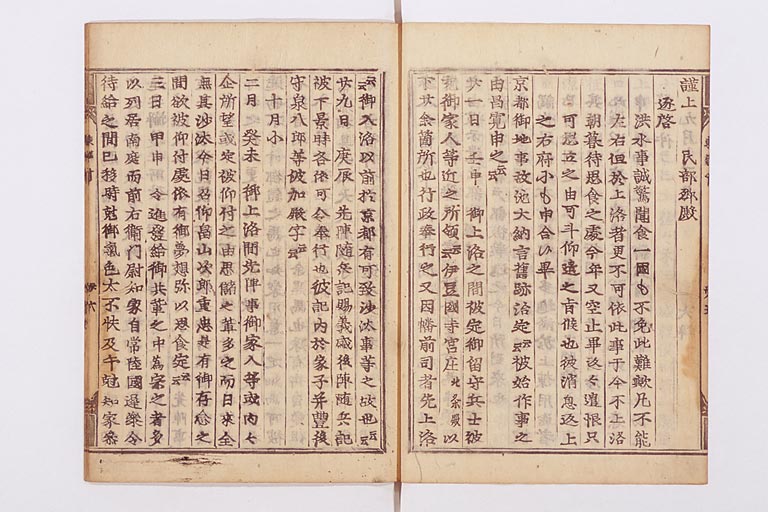 謹上 九月 民部郷殿
逐啓
洪水事誠驚聞食一國も不免此難歟凡不能
左右但於上洛者更不可依此事于今不上洛
朝暮待思食之處今年又空止畢返々遺恨只
可思立之由可斗仰遣之旨候也彼消息返上
之右府小も申合ひ畢
京都御地事故沈大納言舊跡治定云々被始作事之
由昌寛申之云々
廿一日壬申 御上洛之間被定御留守兵士彼
御家人等近之所領云々伊豆國寺宮庄北条殿以
下廿余箇所也行政奉行之又因幡前司者先上洛
云々御入洛以前於京都有可致沙汰事等之故也云々
廿九日 庚辰 天 先陣随兵記賜義盛後陣随兵記
被下景時各依可令奉行也彼記内於家子并豐後
守泉八郎等被加殿字云々
十月小
二月之癸未 御上洛間先陣事御家人等或内々
企所望或定被仰付之由思儲之輩多之而日来全
無其沙汰今日召仰畠山次郎重忠是有御存念之
間欲被仰付處依有御夢想弥以思食定云々
三日甲申 令進發給御共輩之中爲宗之者多
以列居南庭而前右衛門尉知家自常陸國遅參令
待給之間已移時尅御氣色太不快及午尅知家參